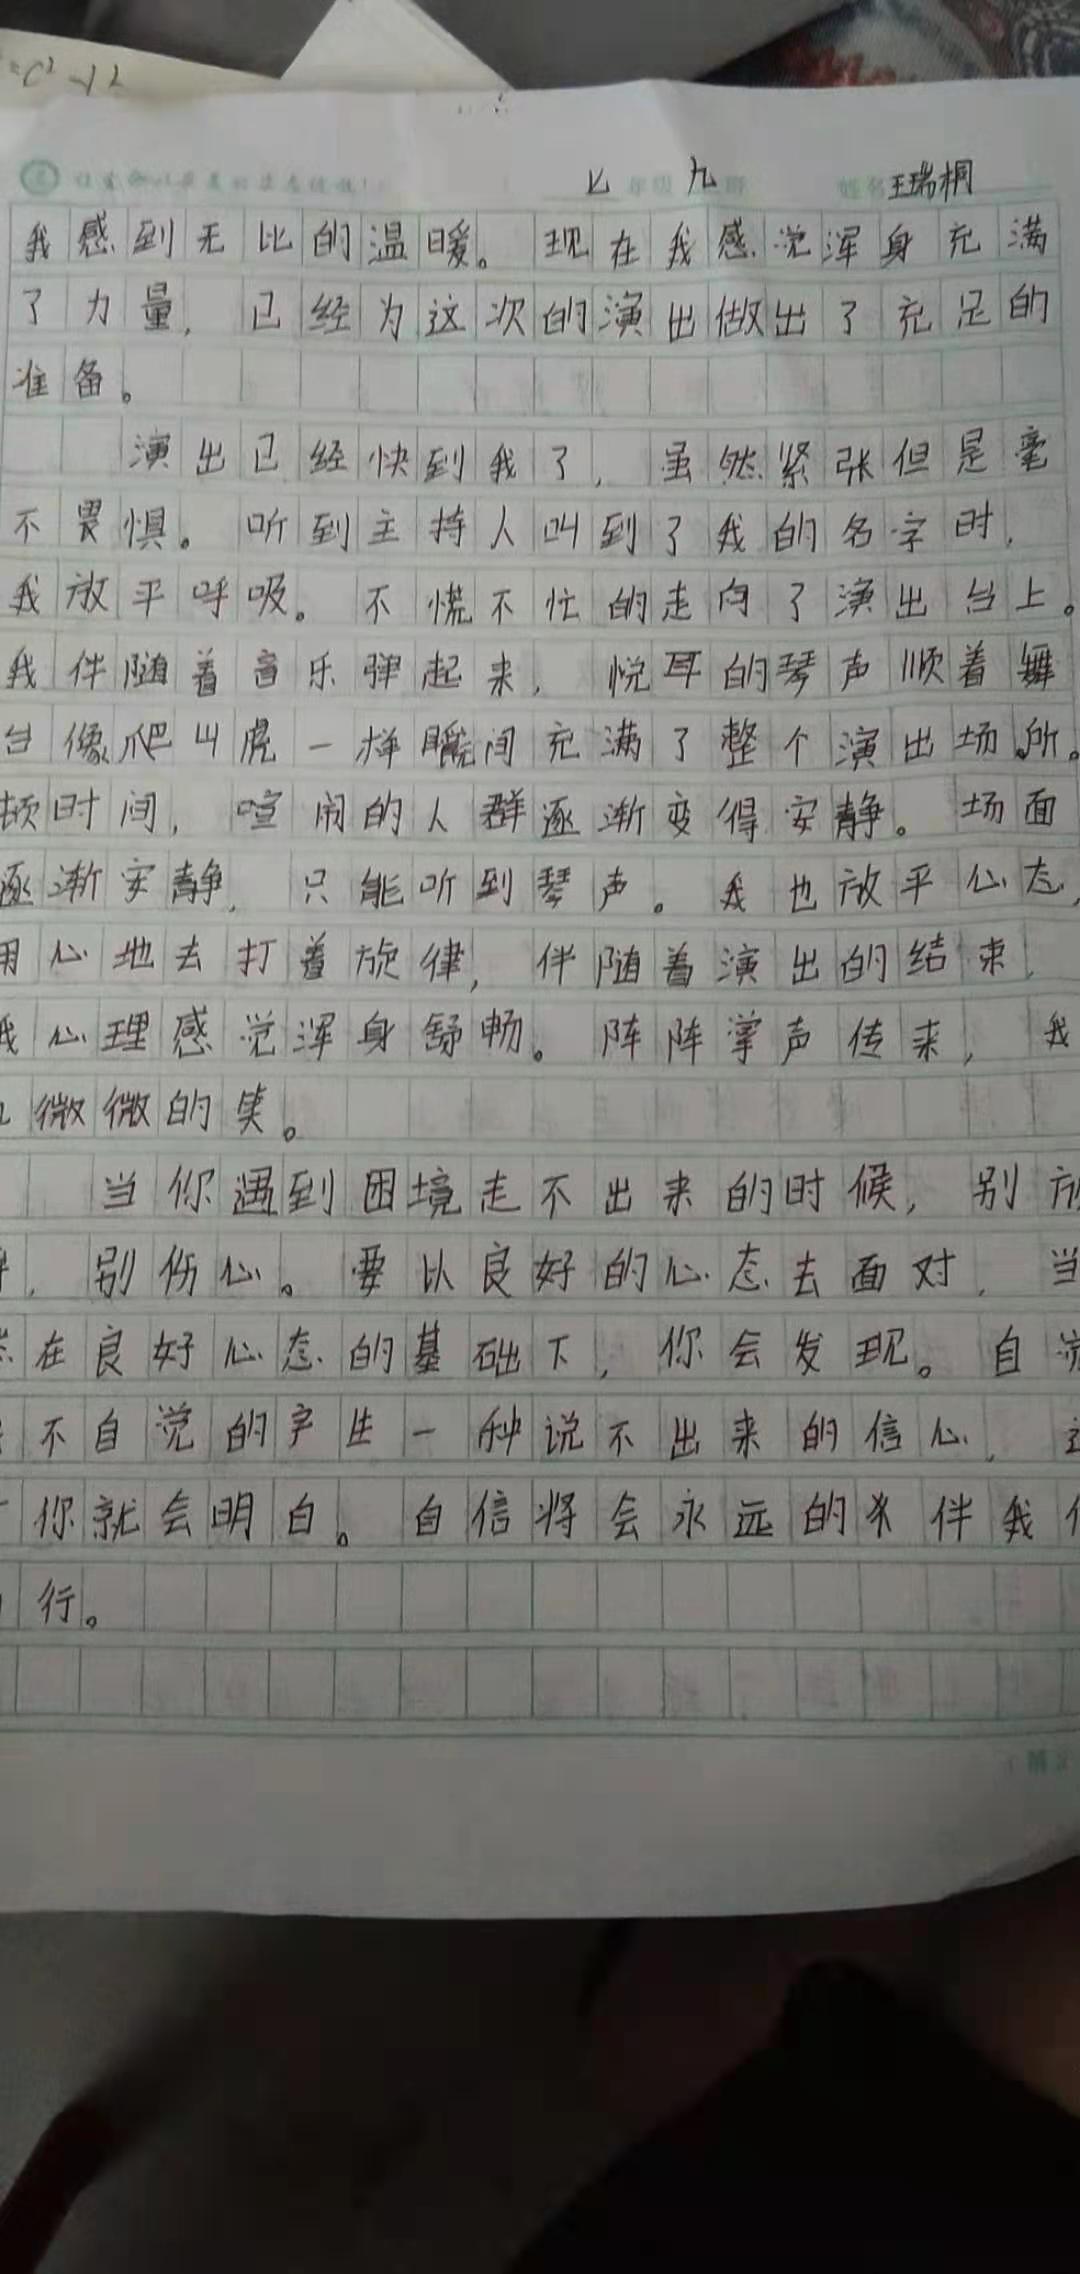 =c²-12
七年级 九班 姓名 王瑞桐
我感到无比的温暖。现在我感觉浑身充满
了力量，已经为这次的演出做出了充足的
准备。
演出已经快到我了，虽然紧张但是毫
不畏惧。听到主持人叫到了我的名字时，
我放平呼吸。不慌不忙的走向了演出台上。
我伴随着音乐弹起来，悦耳的琴声顺着舞
台像爬山虎一样瞬间充满了整个演出场所。
顿时间，喧闹的人群逐渐变得安静。场面
逐渐安静，只能听到琴声。我也放平心态，
用心地去打着旋律，伴随着演出的结束，
我心理感觉浑身舒畅。阵阵掌声传来，我
微微的笑。
当你遇到困境走不出来的时候，别放
，别伤心。要以良好的心态去面对，当
在良好心态的基础下，你会发现。自觉
不自觉的产生一种说不出来的信心，
你就会明白。自信将会永远的伴我
行。